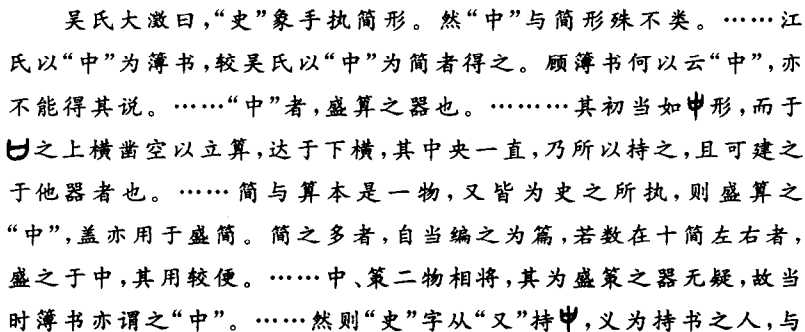 吴氏大澂曰，“史”象手执简形。然“中”与简形殊不类。……江
氏以“中”为簿书，较吴氏以“中”为简者得之。顾簿书何以云“中”，亦
不能得其说。……“中”者，盛算之器也。………其初当如形，而于
之上横凿空以立算，达于下横，其中央一直，乃所以持之，且可建之
于他器者也。……简与算本是一物，又皆为史之所执，则盛算之
“中”，盖亦用于盛简。简之多者，自当编之为篇，若数在十简左右者，
盛之于中，其用较便。……中、筞二物相将，其为盛筞之器无疑，故当
时簿书亦谓之“中”。……然则“史”字从“又”持，义为持书之人，与